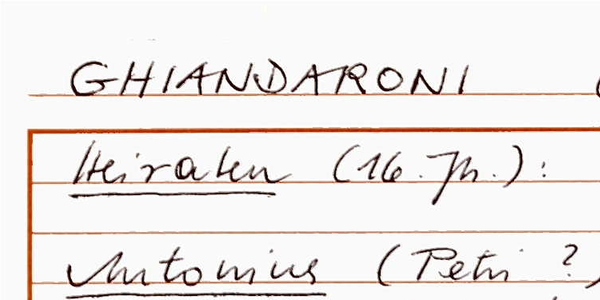 GHIANDARONI (
Heiraten (16. Jh.):
Antonius (Petri ?)